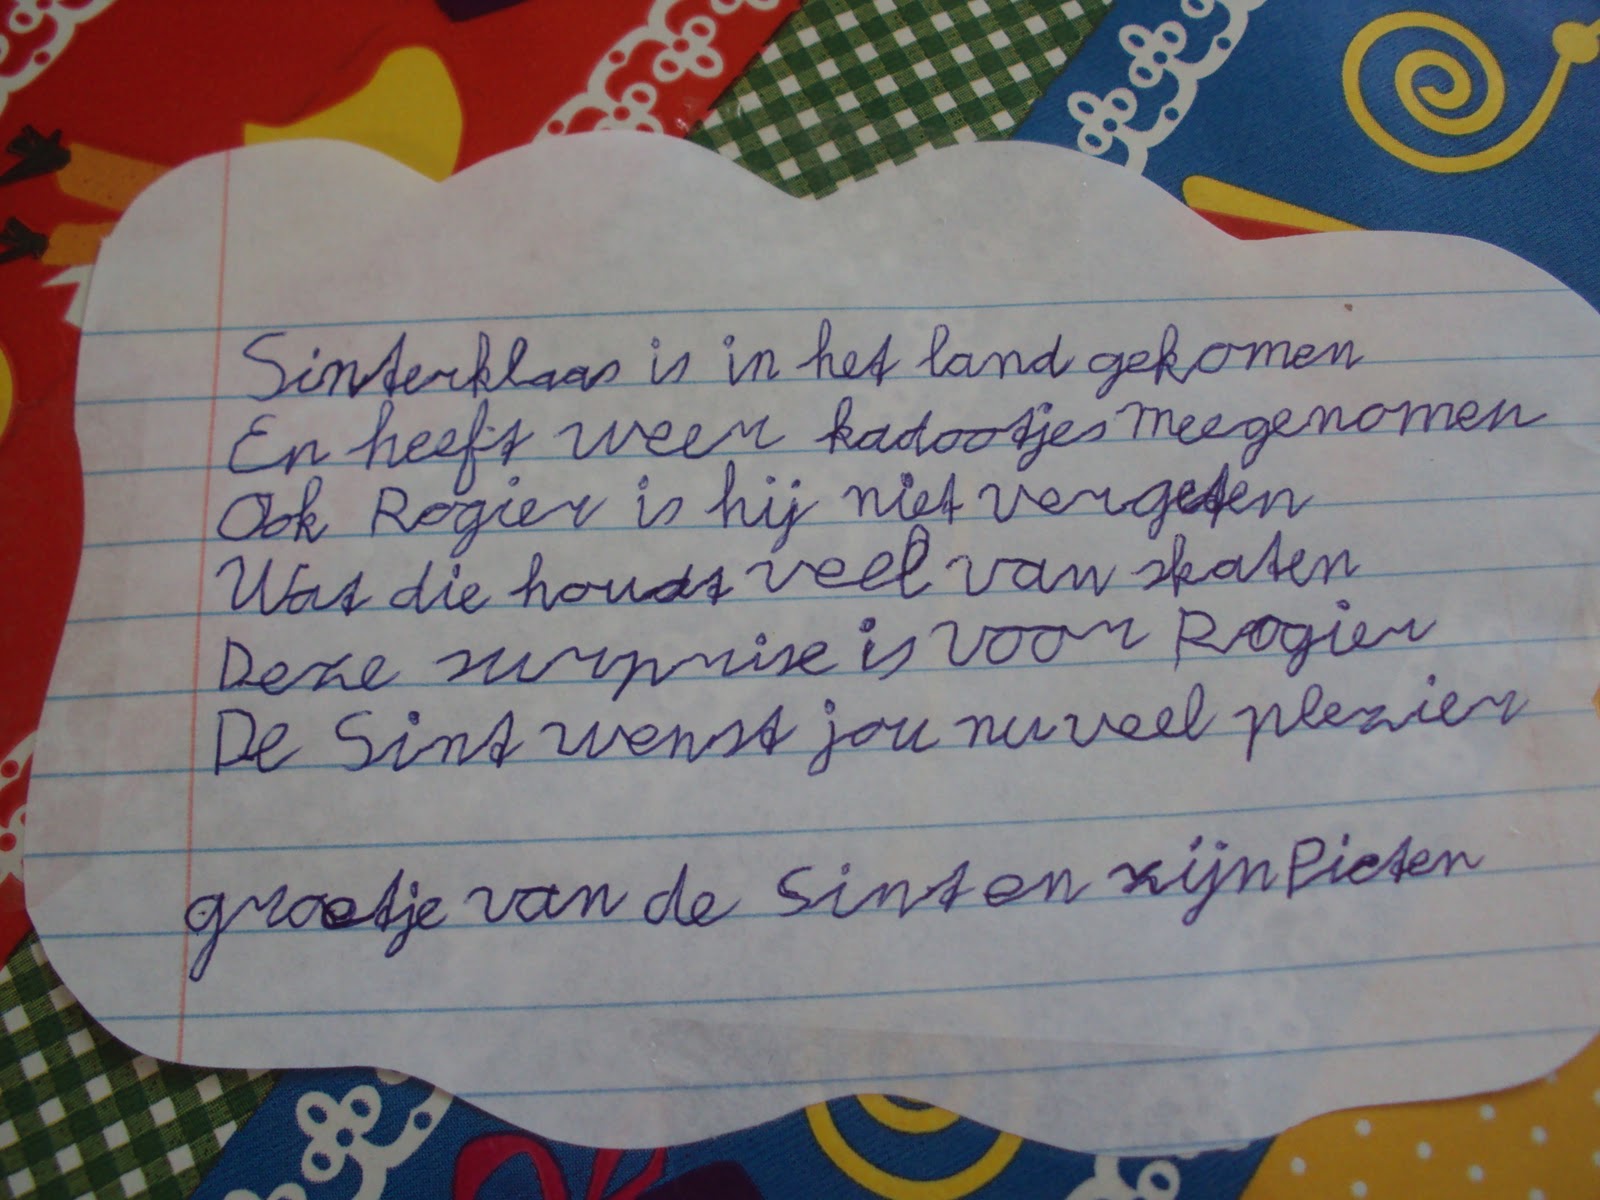 Sinterklaas is in het land gekomen
En heeft weer kadootjes meegenomen
Ook Rogier is hij niet vergeten
Wat die houdt veel van skaten
Deze surprise is voor Rogier
De Sint wenst jou nu veel plezier
groetje van de Sint en zijn Pieten